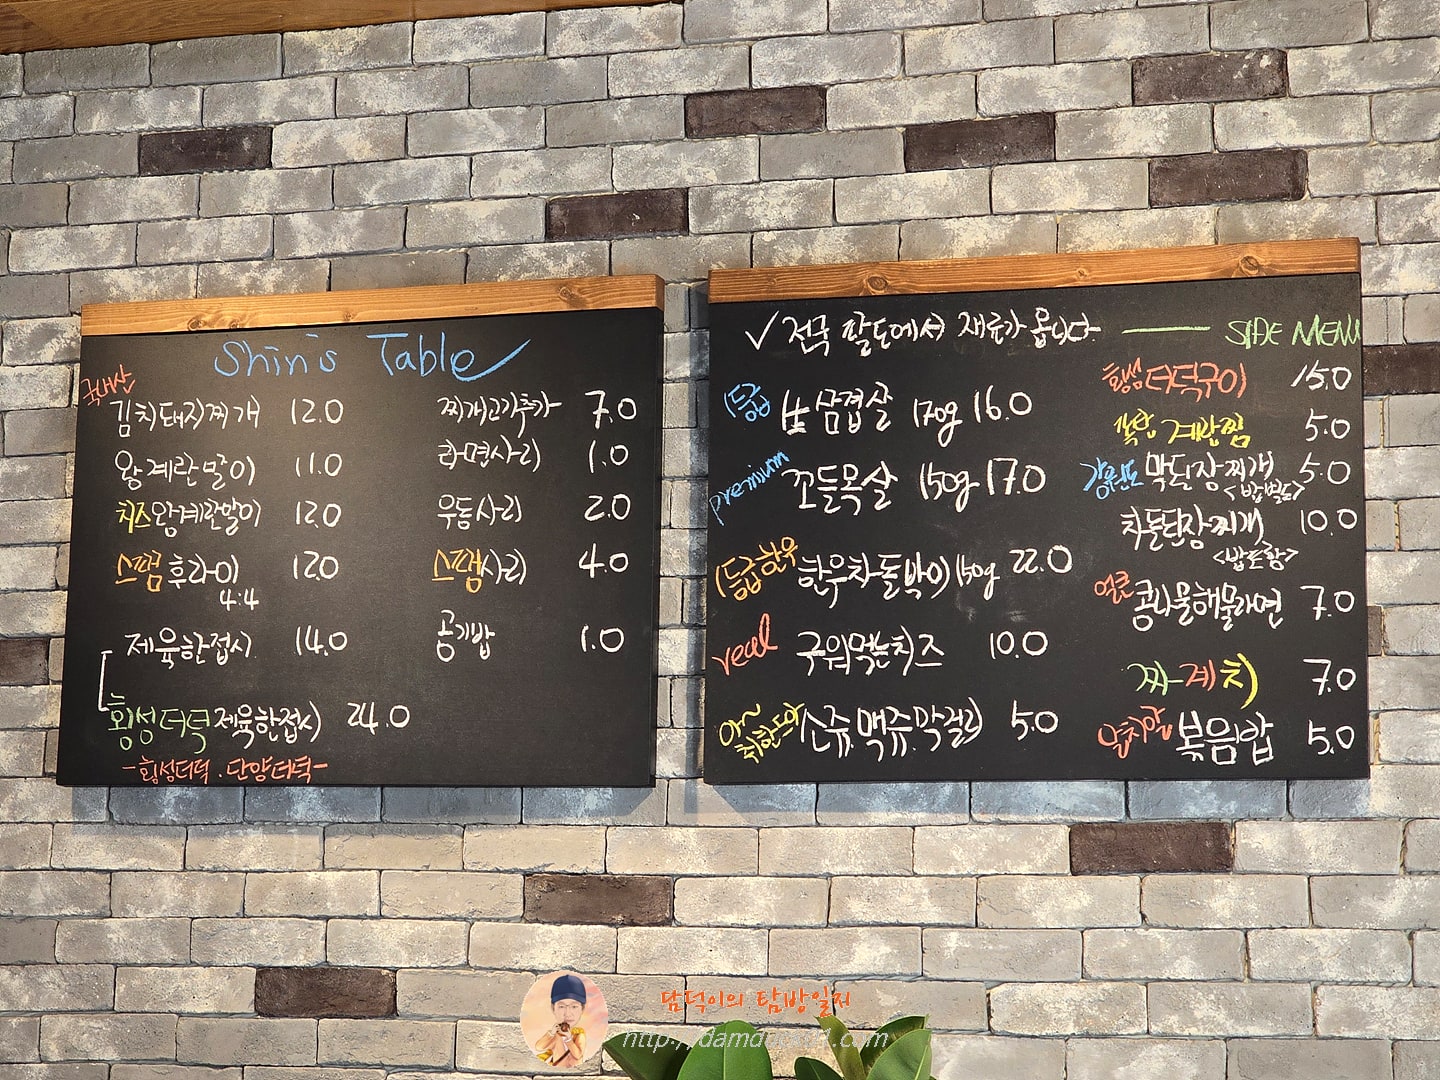 Shin's Table
국내산
김치돼지찌개 12.0
왕계란말이 11.0
치즈왕계란말이 12.0
스팸후라이 12.0
4:4
제육한접시 14.0
횡성더덕제육한접시 24.0
-횡성더덕.단양더덕-
찌개고기추가 7.0
라면사리 1.0
우동사리 2.0
스팸사리 4.0
공기밥 1.0
✓전국 팔도에서 재료가 옵니다
1등급 生삼겹살 170g 16.0
premium 꼬들목살 150g 17.0
1등급한우 한우차돌박이 150g 22.0
real 구워먹는치즈 10.0
아~취한도아 소쥬.맥쥬.막걸리 5.0
SIDE MENU
횡성더덕구이 15.0
계란찜 5.0
강원도 막된장찌개 5.0
<밥별도>
차돌된장찌개 10.0
<밥포함>
얼큰 콩나물해물라면 7.0
짜계치 7.0
날치알 볶음밥 5.0
담덕이의 탐방일지